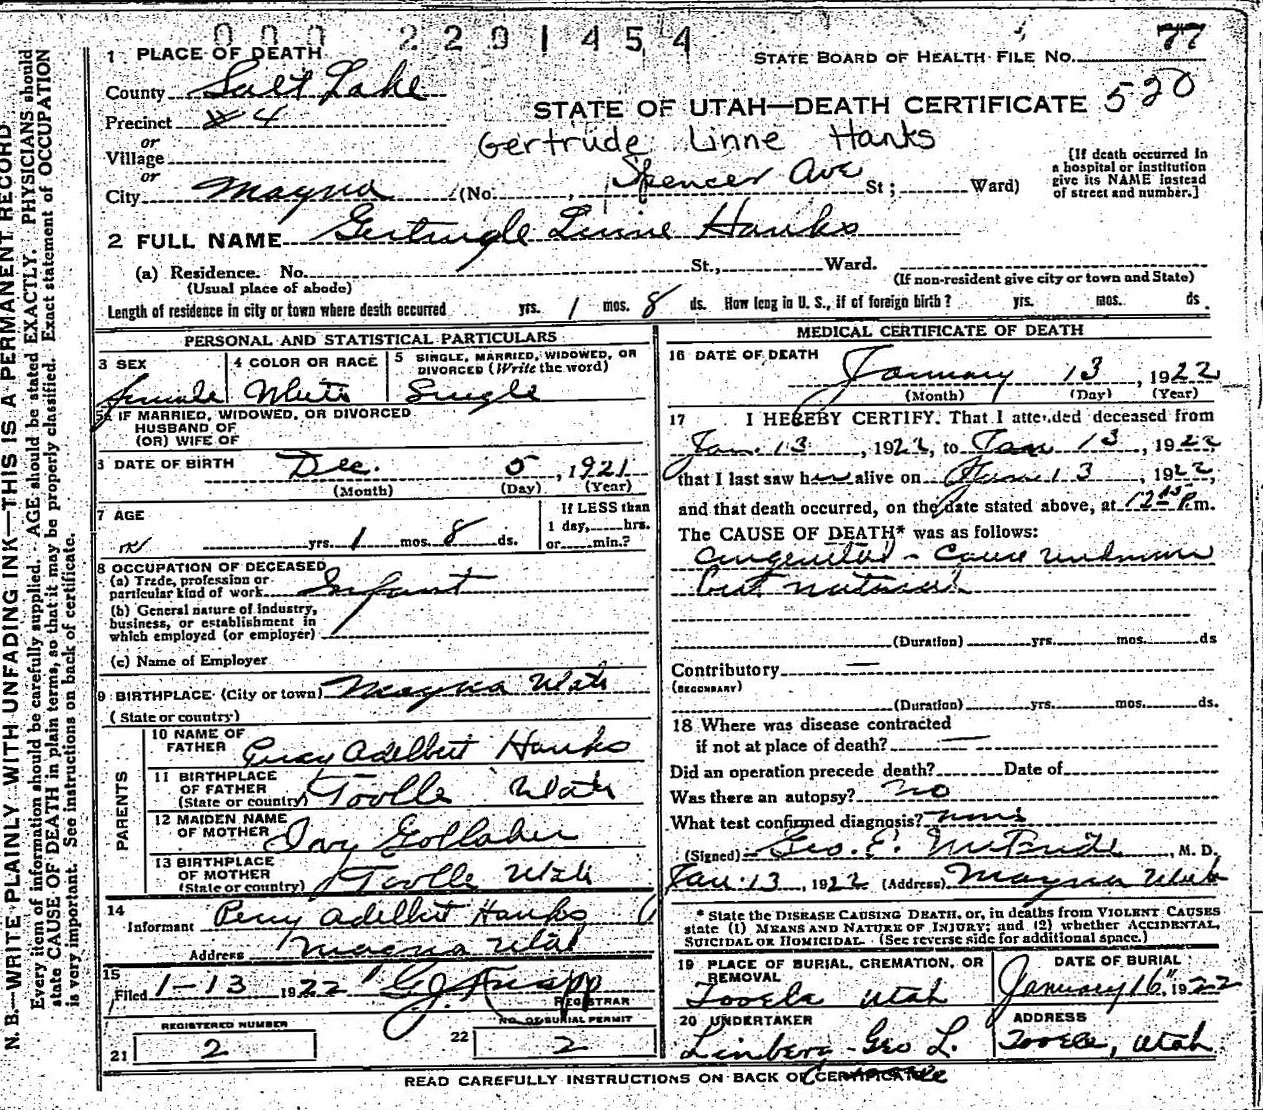 0 0 0 2 2 9 1 4 5 4
77
1 PLACE OF DEATH
STATE BOARD OF HEALTH FILE No.
County Salt Lake
STATE OF UTAH—DEATH CERTIFICATE 520
Precinct #4
Gertrude Linne Hanks
or
Village
or
[If death occurred in
a hospital or institution
give its NAME instead
of street and number.]
City Magna (No. , Spencer Ave St; Ward)
2 FULL NAME Gertrude Linne Hanks
(a) Residence. No. St., Ward.
(Usual place of abode) (If non-resident give city or town and State)
Length of residence in city or town where death occurred yrs. 1 mos. 8 ds. How long in U. S., if of foreign birth? yrs. mos. ds.
N. B.—WRITE PLAINLY WITH UNFADING INK—THIS IS A PERMANENT RECORD
Every item of information should be carefully supplied. AGE should be stated EXACTLY. PHYSICIANS should
state CAUSE OF DEATH in plain terms, so that it may be properly classified. Exact statement of OCCUPATION
is very important. See instructions on back of certificate.
PERSONAL AND STATISTICAL PARTICULARS
3 SEX 4 COLOR OR RACE 5 SINGLE, MARRIED, WIDOWED, OR
DIVORCED (Write the word)
female White Single
5a IF MARRIED, WIDOWED, OR DIVORCED
HUSBAND OF
(OR) WIFE OF
6 DATE OF BIRTH Dec. 5, 1921
(Month) (Day) (Year)
7 AGE
yrs. 1 mos. 8 ds.
If LESS than
1 day, hrs.
or min.?
8 OCCUPATION OF DECEASED
(a) Trade, profession or
particular kind of work Infant
(b) General nature of industry,
business, or establishment in
which employed (or employer)
(c) Name of Employer
9 BIRTHPLACE (City or town) Magna Utah
(State or country)
PARENTS
10 NAME OF
FATHER Percy Adelbert Hanks
11 BIRTHPLACE
OF FATHER
(State or country) Tooele Utah
12 MAIDEN NAME
OF MOTHER Ivy Gollaher
13 BIRTHPLACE
OF MOTHER
(State or country) Tooele Utah
14
Informant Percy Adelbert Hanks
Address Magna Utah
15
Filed 1-13 1922
REGISTRAR
REGISTERED NUMBER
21 2
NO. OF BURIAL PERMIT
22 2
MEDICAL CERTIFICATE OF DEATH
16 DATE OF DEATH
January 13, 1922
(Month) (Day) (Year)
17 I HEREBY CERTIFY. That I attended deceased from
Jan. 13, 1922, to Jan 13, 1922
that I last saw her alive on Jan 13, 1922,
and that death occurred, on the date stated above, at 12 P.m.
The CAUSE OF DEATH* was as follows:
Congenital - Cause unknown
but natural
(Duration) yrs. mos. ds
Contributory —
(SECONDARY)
(Duration) yrs. mos. ds.
18 Where was disease contracted
if not at place of death? —
Did an operation precede death? Date of
Was there an autopsy? no
What test confirmed diagnosis? none
(Signed) Geo. E. , M. D.
Jan. 13, 1922 (Address) Magna Utah
* State the DISEASE CAUSING DEATH, or, in deaths from VIOLENT CAUSES
state (1) MEANS AND NATURE OF INJURY; and (2) whether ACCIDENTAL,
SUICIDAL OR HOMICIDAL. (See reverse side for additional space.)
19 PLACE OF BURIAL, CREMATION, OR
REMOVAL
Tooele Utah
DATE OF BURIAL
January 16", 1922
20 UNDERTAKER
Linberg - Geo L.
ADDRESS
Tooele, Utah
READ CAREFULLY INSTRUCTIONS ON BACK OF CERTIFICATE